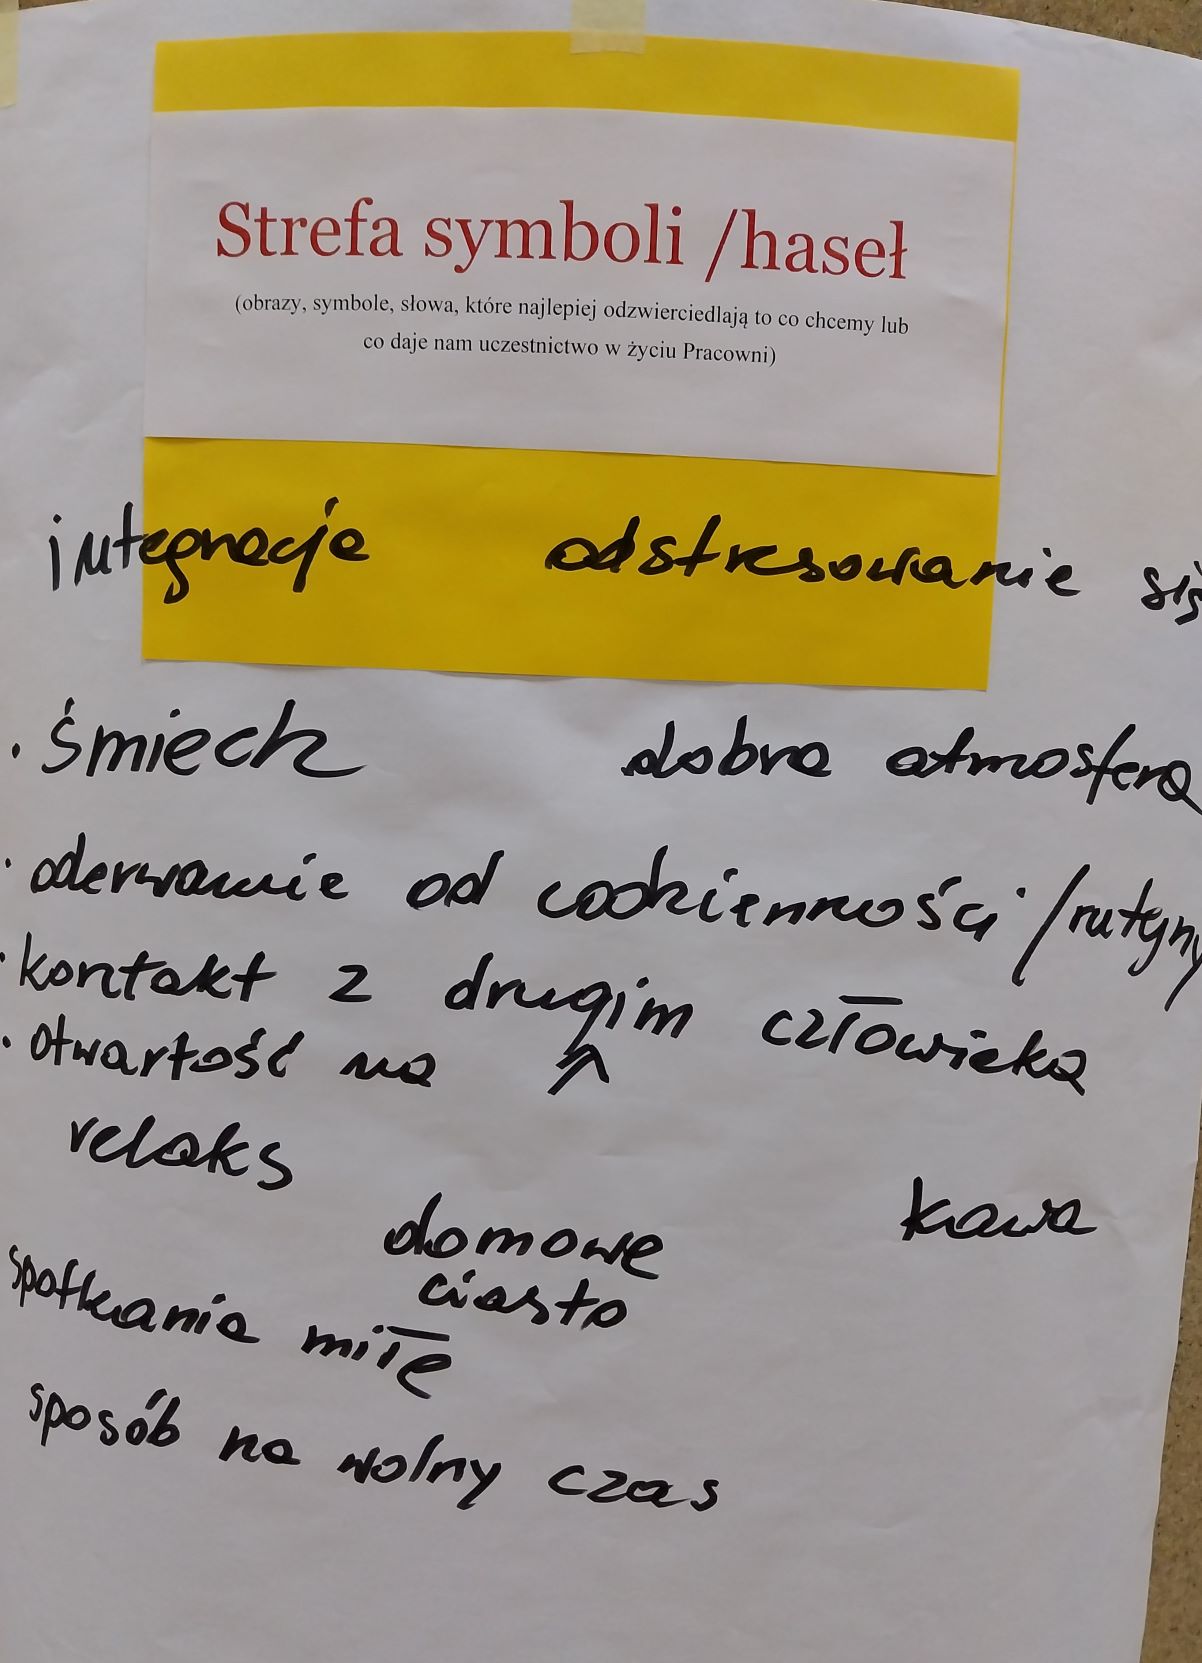 Strefa symboli /haseł
(obrazy, symbole, słowa, które najlepiej odzwierciedlają to co chcemy lub
co daje nam uczestnictwo w życiu Pracowni)
integracja odstresowanie się
• śmiech dobra atmosfera
• oderwanie od codzienności /rutyny
• kontakt z drugim człowieka
• otwartość na ^
relaks
kawa
domowe
ciasto
spotkania miłe
sposób na wolny czas